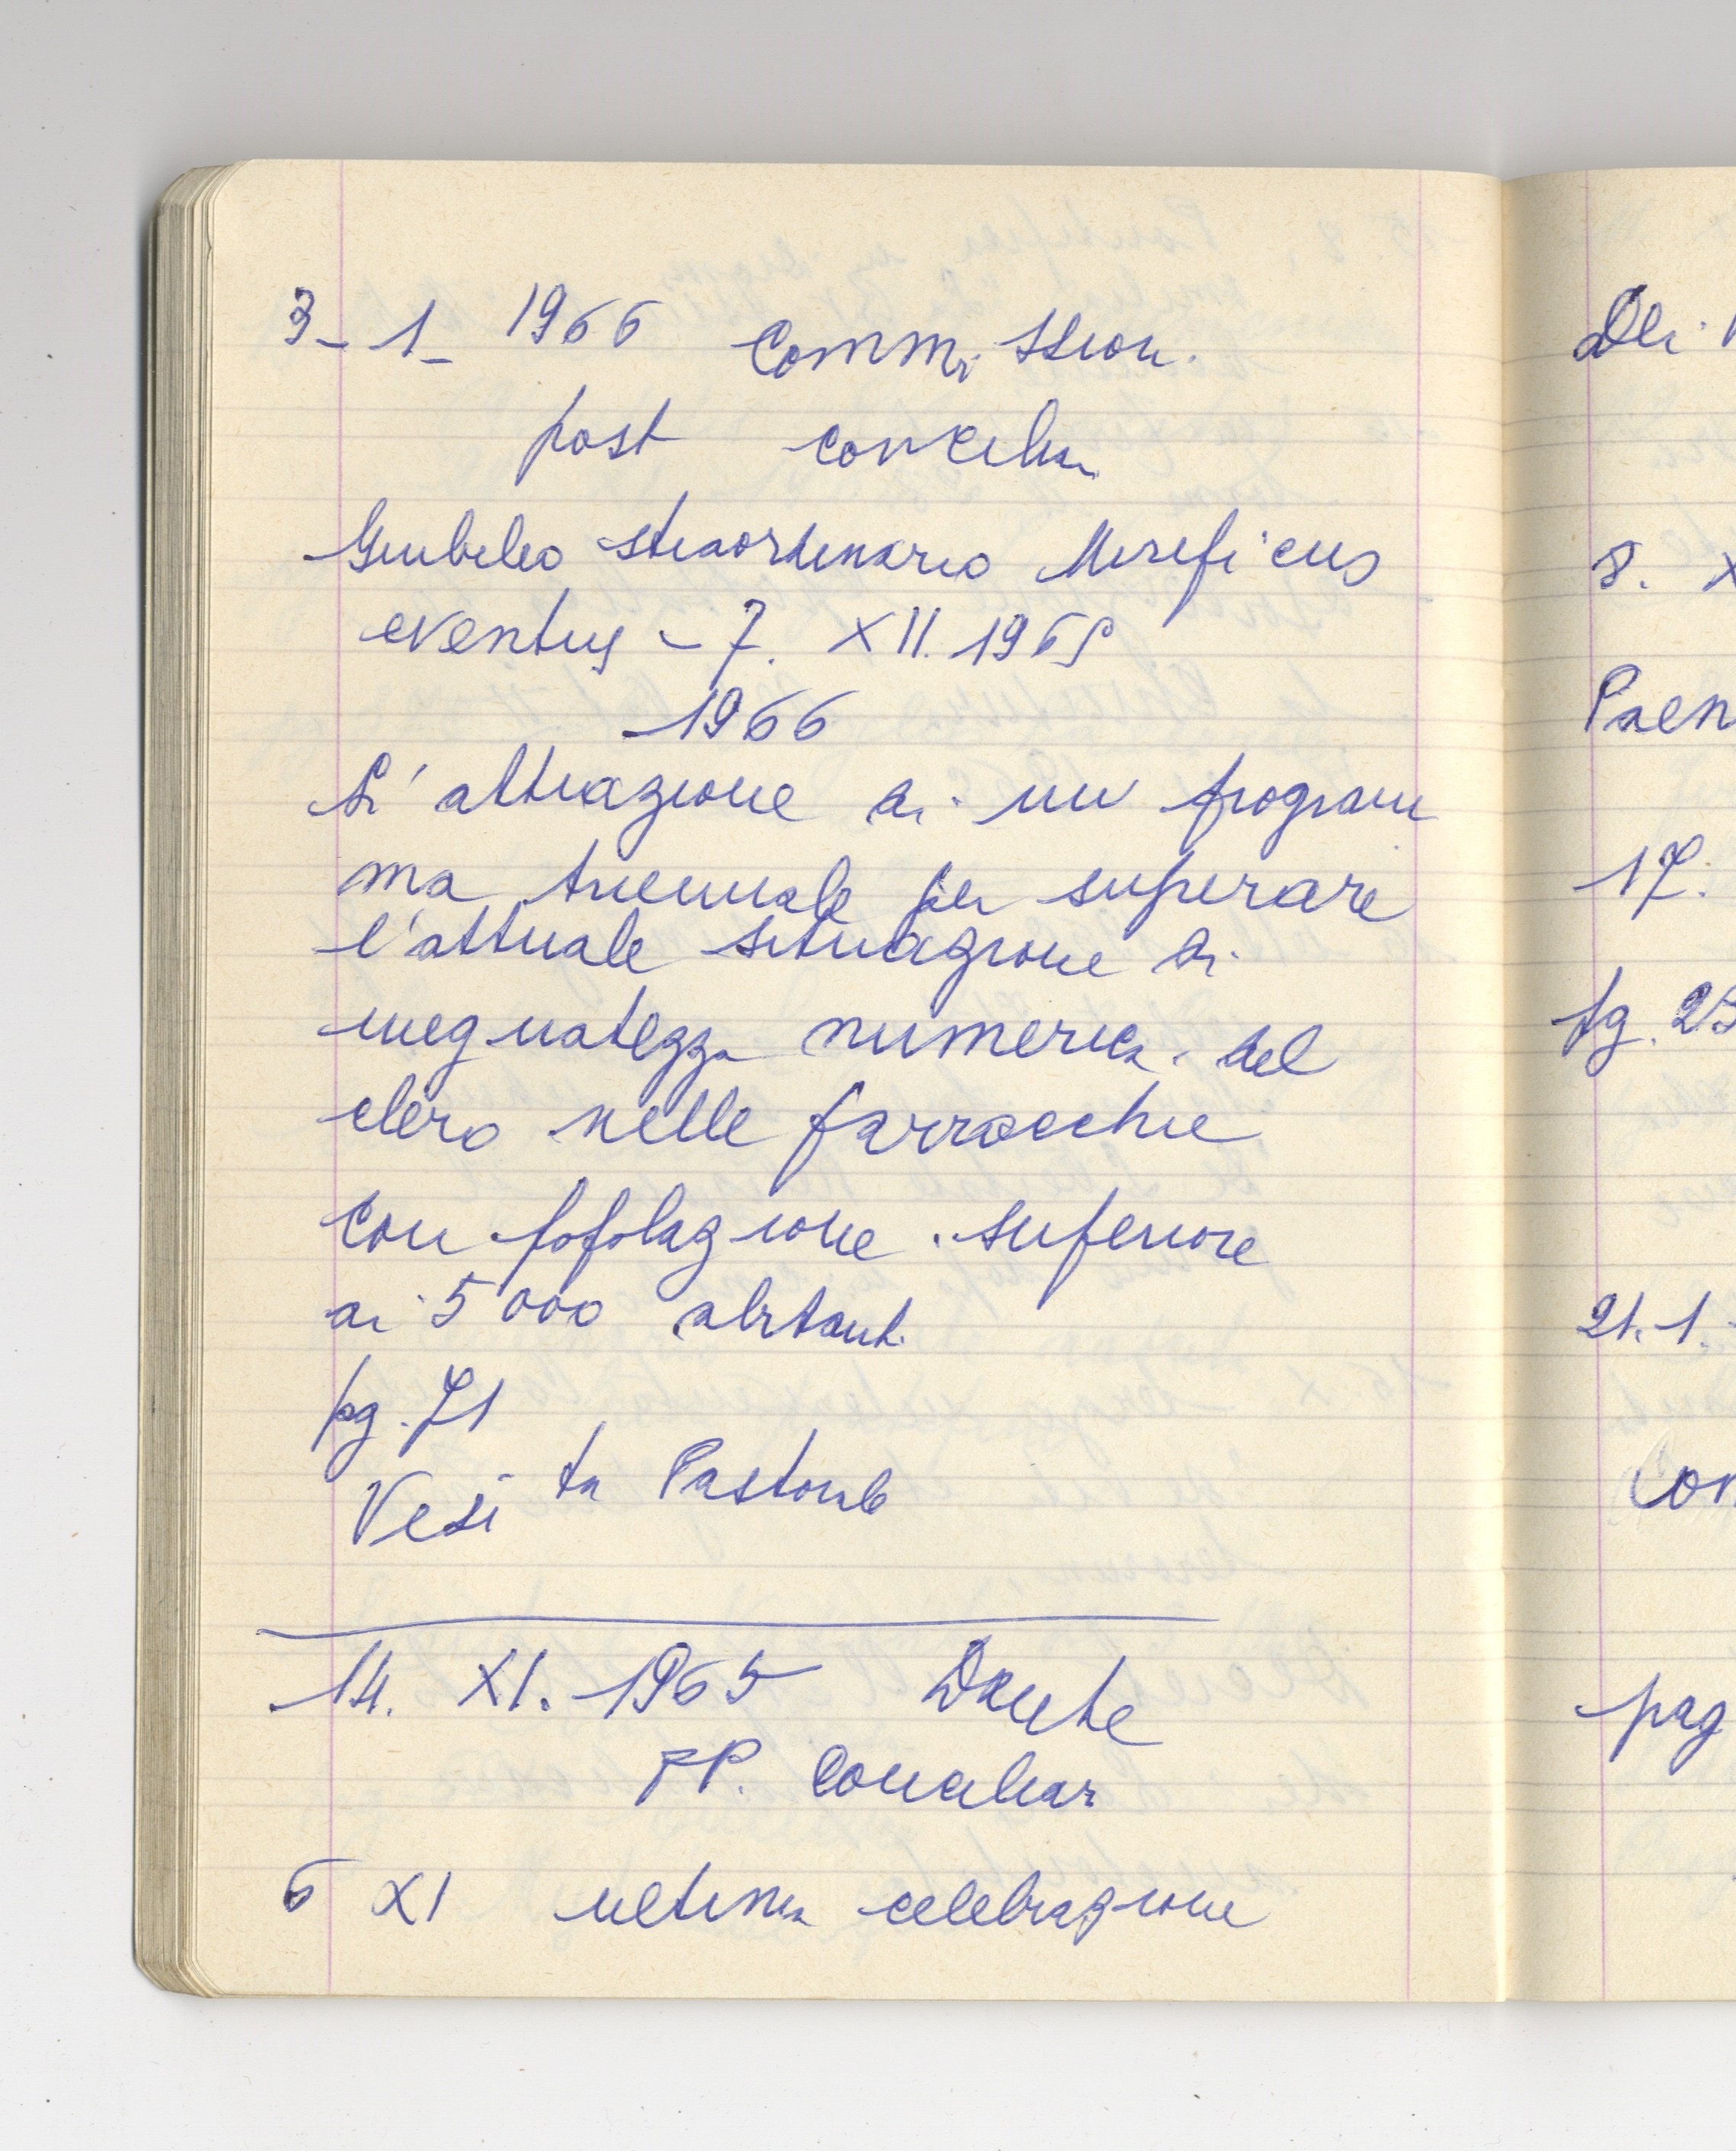 3-1-1966 Commission.
post concilia
Giubileo straordinario Mirificus
eventus - 7. XII. 1965
1966
L'attuazione di un program
ma triennale per superare
l'attuale situazione di
ineguatezza numerica del
clero nelle parrocchie
con popolazione superiore
ai 5000 abitanti
pg. 71
Visita Pastorale
14. XI. 1965 Dante
PP. Conciliari
6 XI ultima celebrazione
8. X
Paen
17.
pg. 25
21.1.
con
pag